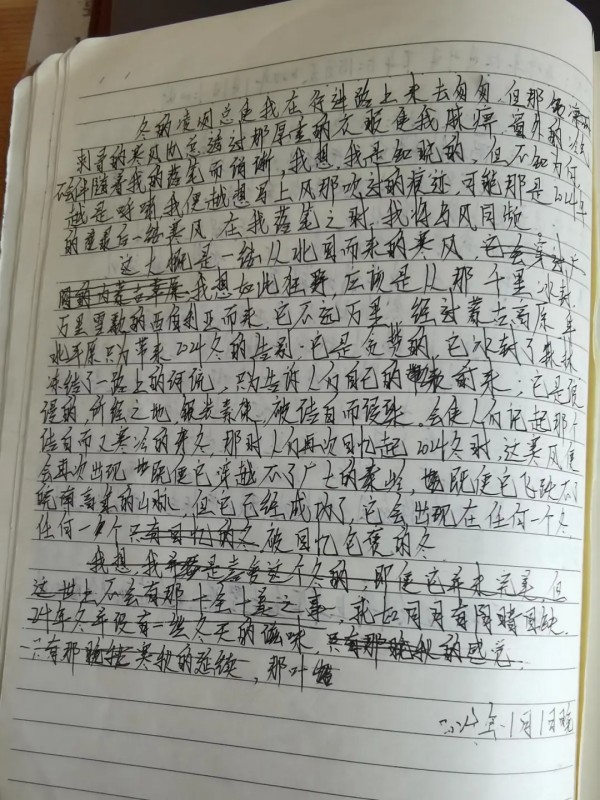 冬的凛冽总是我在行进路上来去匆匆,但那
刺骨的寒风比穿透过那厚重的衣服使我感
伴随着我的落笔而清晰,我想,我是知晓的,但不知为何,
越是呼啸我便越想写上风那吹过的痕迹,可能那是2024年
的最后一缕寒风,在我落笔之时,我将与风同频
这大概是一缕从北而来的寒风,
我想如此狂野,应该是从那千里冰封
万里雪飘的西伯利亚而来,它不远万里,经过蒙古高原
华北平原只为带来2024冬的告别;它是免费的,它冰封了森林
冻结了一路上的河流,只为告诉人们自己的前来;它是浪
漫的,所经之地,银装素裹,被洁白而
会使人们记起那个
洁白而又寒冷的寒冬,那时人们再次回忆起2024冬时,这寒风便
会再次出现 既便它穿越不了广大的秦岭,既便它飞跃不了
的山脉,但它已经成功了,它会出现在任何一个冬
任何一个 被回忆包裹的冬
我想,我是喜爱这个冬的,即便它并未完美,但
这世上不会有那十全十美之事,就如同月有阴晴圆缺,
24年冬并没有一些冬天的滋味,只有那晚秋的感觉,
只有那寒秋的延续,那叶
年1月1日晚